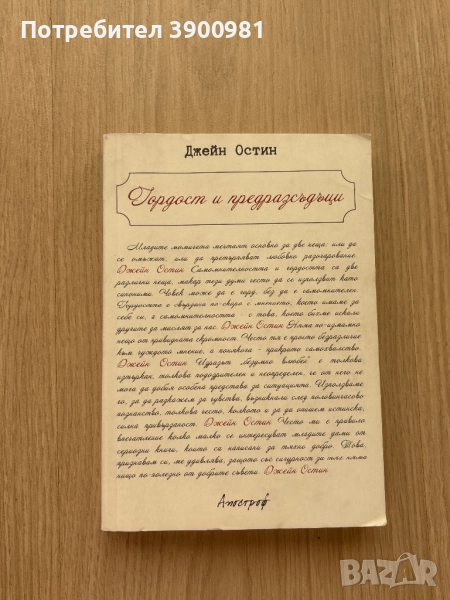 Потребител 3900981
Джейн Остин
Гордост и предразсъдъци
Младите момичета мечтаят основно за две неща: или да
се омъжат, или да претърпят любовно разочарование.
Джейн Остин Самомнителността и гордостта са две
различни неща, макар тези думи често да се използват като
синоними. Човек може да е горд, без да е самомнителен.
Гордостта е свързана по-скоро с мнението, което имаме за
себе си, а самомнителността - с това, което бихме искали
другите да мислят за нас. Джейн Остин Няма по-измамно
нещо от привидната скромност. Често тя е просто безразличие
към чуждото мнение, а понякога - прикрито самохвалство.
Джейн Остин Изразът „безумно влюбен" е толкова
изтъркан, толкова подозрителен и неопределен, че от него не
мога да добия особена представа за ситуацията. Използваме
го, за да разкажем за чувства, възникнали след половинчасово
познанство, толкова често, колкото и за да опишем истинска,
силна привързаност. Джейн Остин Често ми е правило
впечатление колко малко се интересуват младите дами от
сериозни книги, които са написани за тяхно добро. Това,
признавам си, ме удивлява, защото със сигурност за тях няма
нищо по-полезно от добрите съвети. Джейн Остин
Апостроф
BAZAR